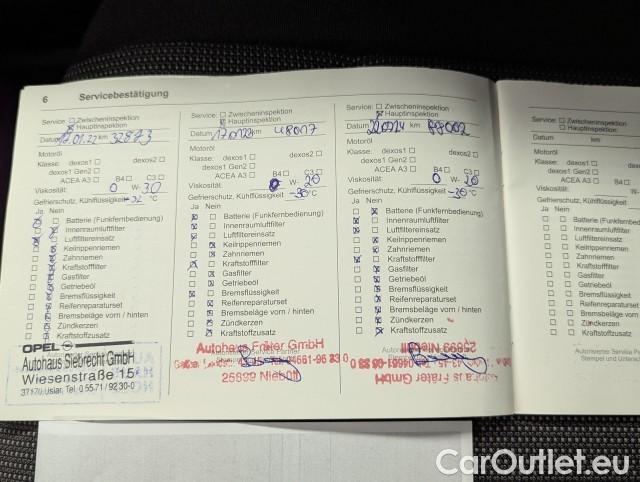 6 Servicebestätigung
Service: Zwischeninspektion
Hauptinspektion
Datum 01.22 km 32873
Motoröl
Klasse: dexos1 dexos2
dexos1 Gen2
ACEA A3 B4 C3
Viskosität: 0 W- 30
Gefrierschutz, Kühlflüssigkeit -32 °C
Ja Nein
Batterie (Funkfernbedienung)
Innenraumluftfilter
Luftfiltereinsatz
Keilrippenriemen
Zahnriemen
Kraftstofffilter
Gasfilter
Getriebeöl
Bremsflüssigkeit
Reifenreparaturset
Bremsbeläge vorn / hinten
Zündkerzen
Kraftstoffzusatz
OPEL
Autohaus Siebrecht GmbH
Wiesenstraße 15
37170 Uslar, Tel. 0 55 71 / 92 30-0
Service: Zwischeninspektion
Hauptinspektion
Datum km 48017
Motoröl
Klasse: dexos1 dexos2
dexos1 Gen2
ACEA A3 B4 C3
Viskosität: 0 W- 20
Gefrierschutz, Kühlflüssigkeit -30 °C
Ja Nein
Batterie (Funkfernbedienung)
Innenraumluftfilter
Luftfiltereinsatz
Keilrippenriemen
Zahnriemen
Kraftstofffilter
Gasfilter
Getriebeöl
Bremsflüssigkeit
Reifenreparaturset
Bremsbeläge vorn / hinten
Zündkerzen
Kraftstoffzusatz
Autohaus Fräter GmbH
25899 Niebüll
Service: Zwischeninspektion
Hauptinspektion
Datum km
Motoröl
Klasse: dexos1 dexos2
dexos1 Gen2
ACEA A3 B4 C3
Viskosität: 0 W- 20
Gefrierschutz, Kühlflüssigkeit -30 °C
Ja Nein
Batterie (Funkfernbedienung)
Innenraumluftfilter
Luftfiltereinsatz
Keilrippenriemen
Zahnriemen
Kraftstofffilter
Gasfilter
Getriebeöl
Bremsflüssigkeit
Reifenreparaturset
Bremsbeläge vorn / hinten
Zündkerzen
Kraftstoffzusatz
25899 Niebüll
Autohaus Fräter GmbH
Service: Zwischeninspektion
Hauptinspektion
Datum km
Motoröl
Klasse: dexos1
dexos1 Gen2
ACEA A3 B4
Viskosität:
Gefrierschutz, Kühlflüssigkeit
Ja Nein
Batterie (Funkfernb
Innenraumluftfilter
Luftfiltereinsatz
Keilrippenriemen
Zahnriemen
Kraftstofffilter
Gasfilter
Getriebeöl
Bremsflüssigkeit
Reifenreparaturs
Bremsbeläge vo
Zündkerzen
Kraftstoffzusatz
Autorisierter Service Pa
Stempel und Untersch
CarOutlet.eu